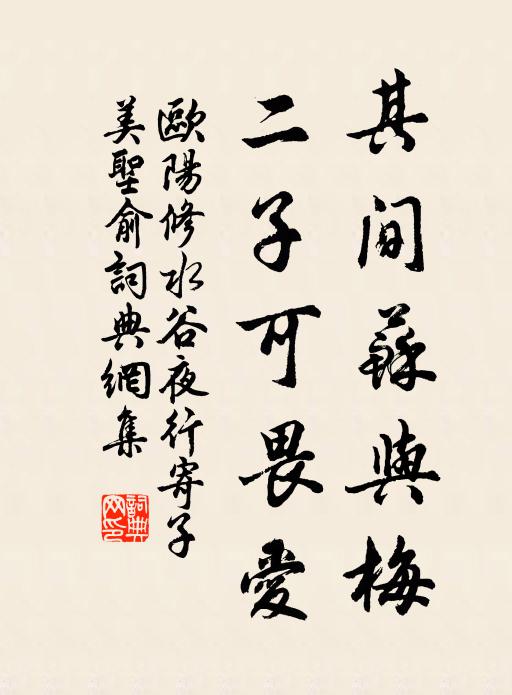 其間蘇與梅
二子可畏愛
歐陽修水谷夜行寄子
美聖俞詞典網集
詞典網印